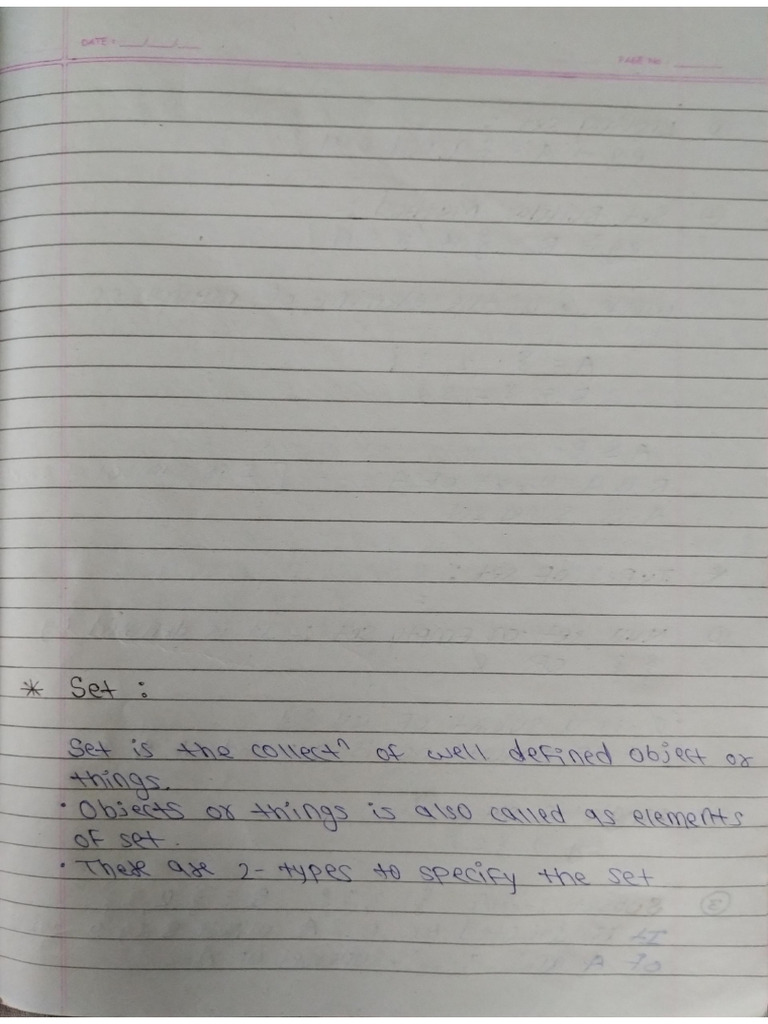 DATE: __/__/__
PAGE NO.: ____
* Set :
Set is the collectⁿ of well defined object or
things.
• Objects or things is also called as elements
of set.
• There are 2- types to specify the set